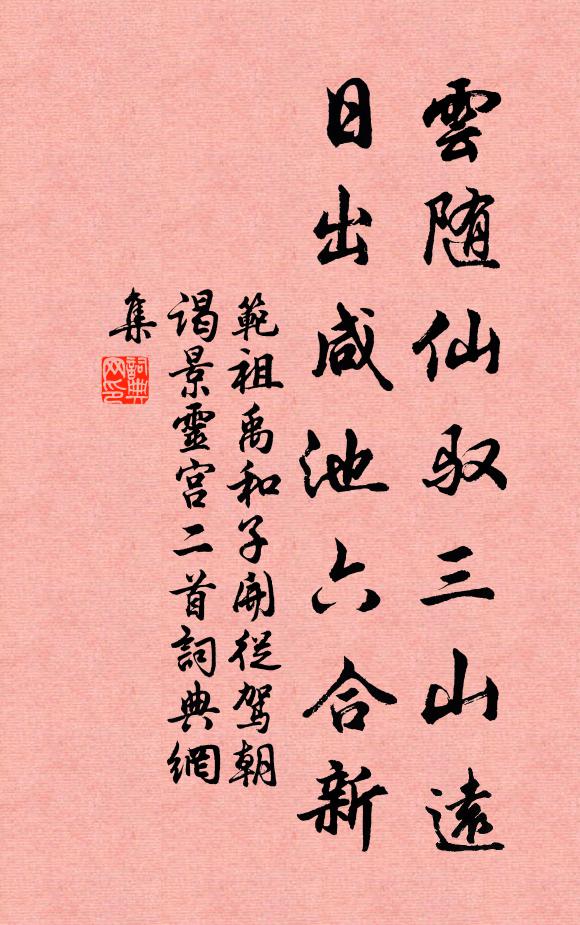 雲随仙馭三山遠
日出咸池六合新
範祖禹和子開從駕朝
謁景靈宮二首詞典網
集
詞典
网印